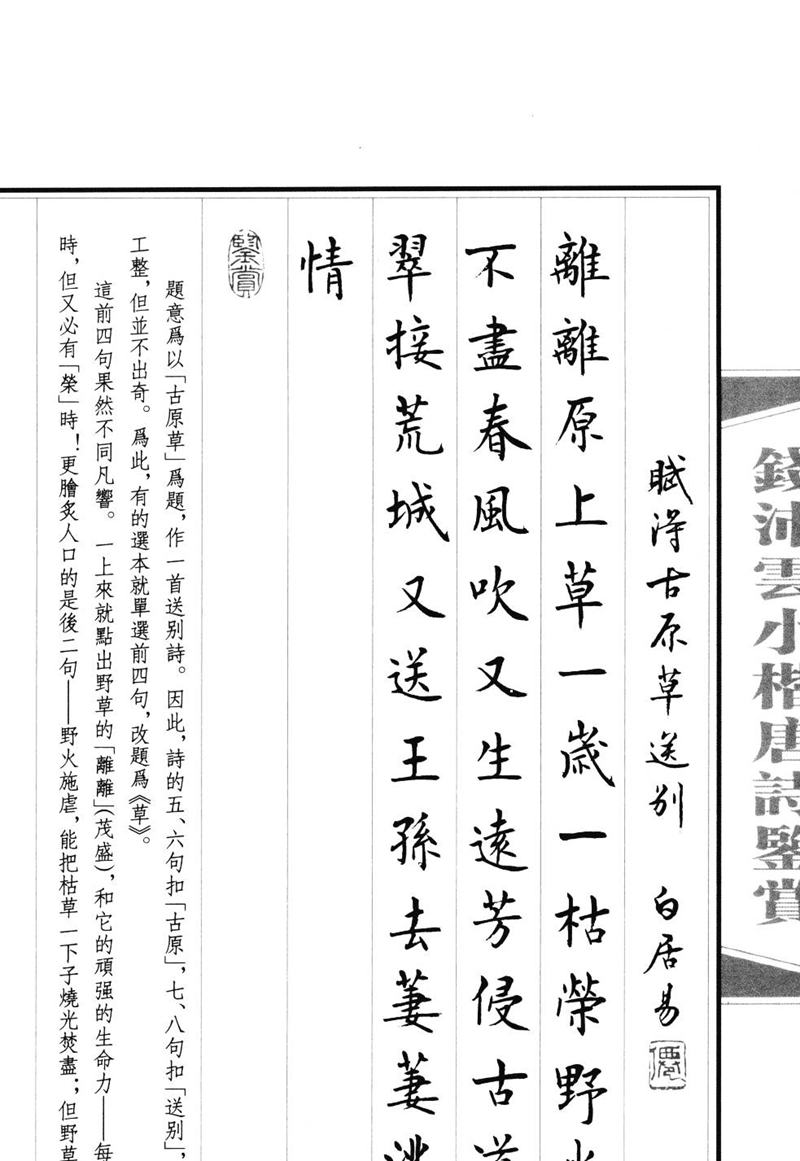 錢沛雲小楷唐詩鑒賞
賦得古原草送别 白居易
離離原上草一歲一枯榮野火
不盡春風吹又生遠芳侵古道
翠接荒城又送王孫去萋萋滿
情
鑒賞
題意爲以「古原草」爲題，作一首送别詩。因此，詩的五、六句扣「古原」，七、八句扣「送别」，
工整，但並不出奇。爲此，有的選本就單選前四句，改題爲《草》。
這前四句果然不同凡響。一上來就點出野草的「離離」（茂盛），和它的頑强的生命力——每
時，但又必有「榮」時！更膾炙人口的是後二句——野火施虐，能把枯草一下子燒光焚盡；但野草